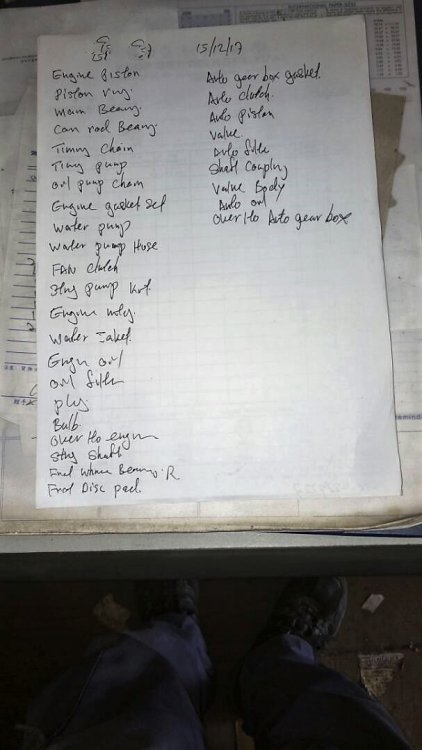 15/12/17
Engine piston
piston ring
main Bearng.
Con rod Bearng.
Timing Chain
Timg pump
oil pump Chain
Engine gasket Set
water pump
water pump Huse
FAN clutch
Strg pump kit.
Engine mtg.
Water
Engn oil
oil filter
plug
Bulb.
over Ho engin
Strg Shaft
Bearng. R
Frot Disc pad.
Auto gear box gasket.
Auto clutch.
Auto piston
value.
Auto filte
Shaft Coupling
Value Body
Auto oil
over Ho Auto gear box